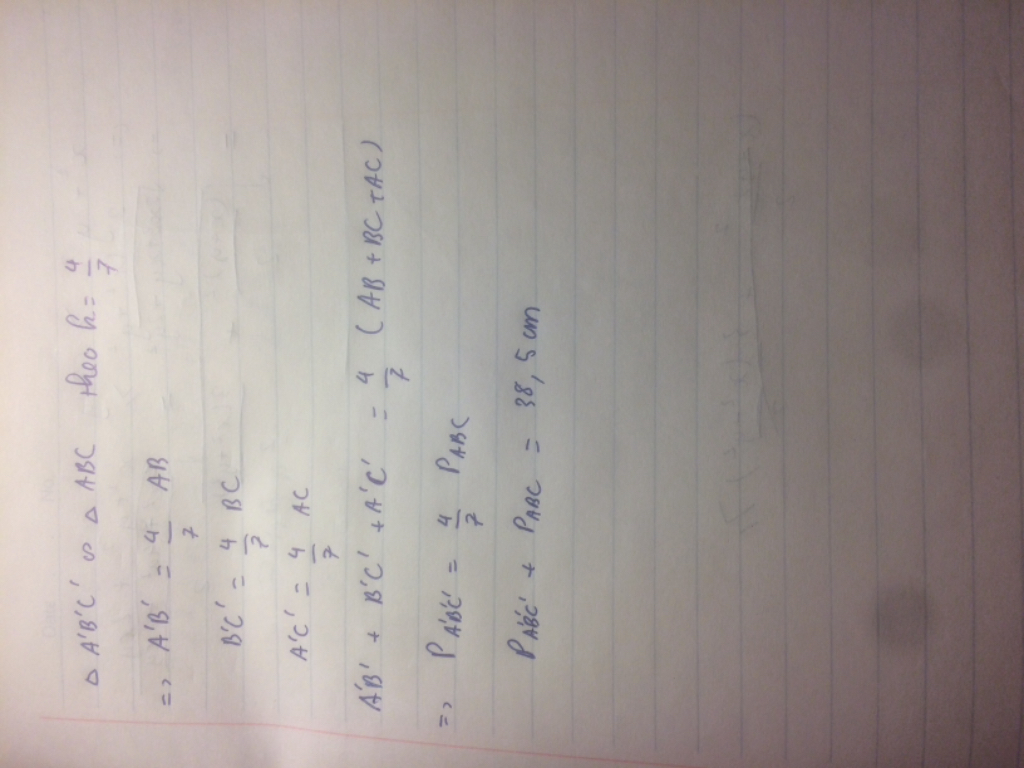 △ A'B'C' ∽ △ ABC theo k = 4/7
=> A'B' = 4/7 AB
B'C' = 4/7 BC
A'C' = 4/7 AC
A'B' + B'C' + A'C' = 4/7 (AB + BC + AC)
=> P A'B'C' = 4/7 P ABC
P A'B'C' + P ABC = 38,5 cm